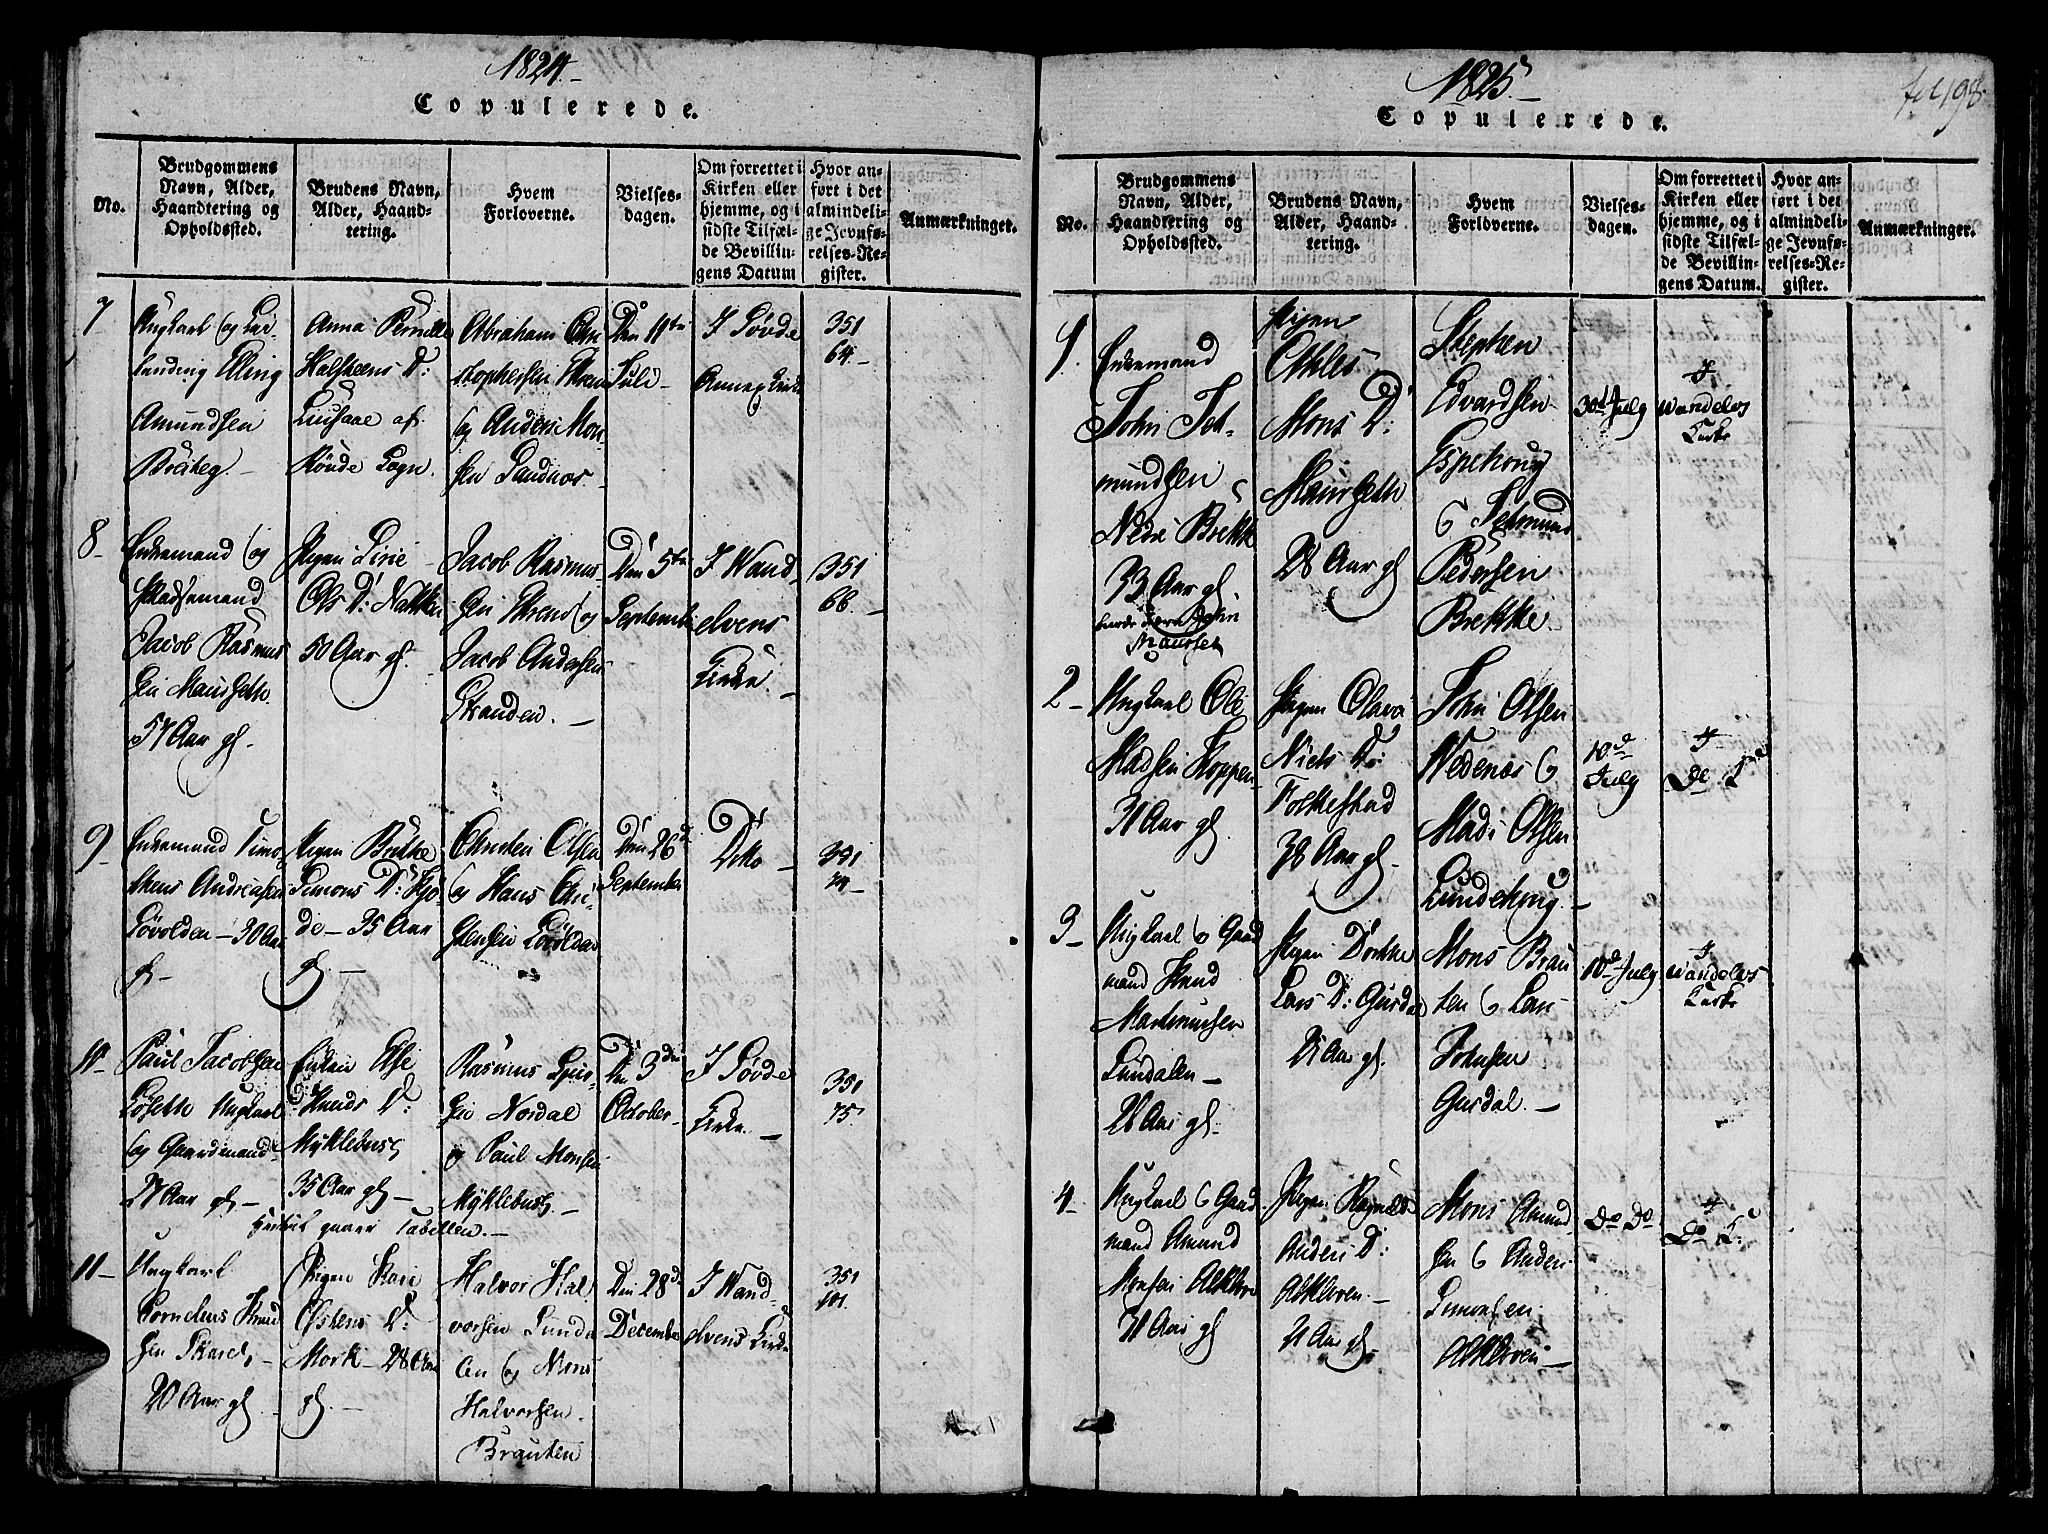 1824.-
Copulerede.
No.
Brudgommens
Navn, Alder,
Haandtering og
Opholdssted.
Brudens Navn,
Alder, Haand-
tering.
Hvem
Forloverne.
Vielses-
dagen.
Om forrettet i
Kirken eller
hjemme, og i
sidste Tilfæl-
de Bevillin-
gens Datum
Hvor an-
ført i det
almindeli-
ge Jevnfø-
relses-Re-
gister.
Anmærkninger.
7
Ungkarl og
Elling
Amundsen
Breiteg.-
Anna Pernille
Halsteens D:
af
Sogn.
Abraham Chri
stophersen
og Anders Mon-
sen Sandnær-
Den 11te
Juli-
I Søvde
Annex Kirke
351
64.-
8-
Enkemand og
Jacob Rasmus
sen Maurseth.
57 Aar gl.
Pigen Sirie
Ols D: Nakken
50 Aar gl.
Jacob Rasmus-
sen og
Jacob Andersen
Stranden.-
Den 5te
September
I Wand,
elvens
Kirke.-
351
66-
9-
Enkemand Timo
theus Andreasen
Løvolden-30 Aar
gl-
Pigen Brithe
Simons D:
de-35 Aar
gl.-
Christen Olsen
og Hans Chri-
stensen Løvolden
Den 26d
September
Ditto-
351
74-
10-
Paul Jacobsen
Ungkarl
og Gaardmand-
27 Aar gl-
Enken Else
Knuds D:
Myklebust
35 Aar gl-
Rasmus
sen Nordal
og Paul Monsen
Myklebust-
Den 3die
October-
I Søvde
Kirke.-
351
75.
Tabellen.-
11-
Ungkarl
Cornelius Knud
sen
20 Aar gl.
Pigen Kari
Østens D:
Mork-28 Aar
gl.-
Halvor Hal
vorsen Sunda
len og Mons
Halvorsen.
Brauten
Den 28d
December
I Wand-
elvens Kirke
351
101.
1825-
Copulerede.
fol 198.
No.
Brudgommens
Navn, Alder,
Haandtering og
Opholdssted.
Brudens Navn,
Alder, Haand-
tering.
Hvem
Forloverne.
Vielses-
dagen.
Om forrettet i
Kirken eller
hjemme, og i
sidste Tilfæl-
de Bevillin-
gens Datum.
Hvor an-
ført i det
almindeli-
ge Jevnfø-
relses-Re-
gister.
Anmærkninger.
1.
Enkemand
John Jet-
mundsen
Nedre Brekke
33 Aar gl.
John
Maurset
Pigen
Mons D:
Maurseth
28 Aar gl
Stephen
Edvardsen
Espehoug
6 Jetmund
Pedersen
Brekke.
30d July
I
Wandelvs
Kirke
2-
Ungkarl Ole
Madsen Koppen
31 Aar gl.
Pigen Olava
Niels D:
Folkestad
38 Aar gl-
John Olsen
Nedenæs 6
Mads Olsen
Lundehoug.-
10d
July
I
Do K
3-
Ungkarl 6 Gaard
mand Knud
Martinusen
Sundalen-
26 Aar gl.
Pigen Dorthe
Lars D: Gusdal
21 Aar gl.
Mons Brau
ten 6 Lars
Johnsen
Gusdal.-
10d July
I
Wandelvs
Kirke
4-
Ungkarl 6 Gaard
mand Amund
Monsen Abkleven
31 Aar gl
Pigen
Anders D:
Abkleven.-
21 Aar gl-
Mons Amund
sen 6 Anders
Simonsen
Abkleven-
Do Do
I
Do K: